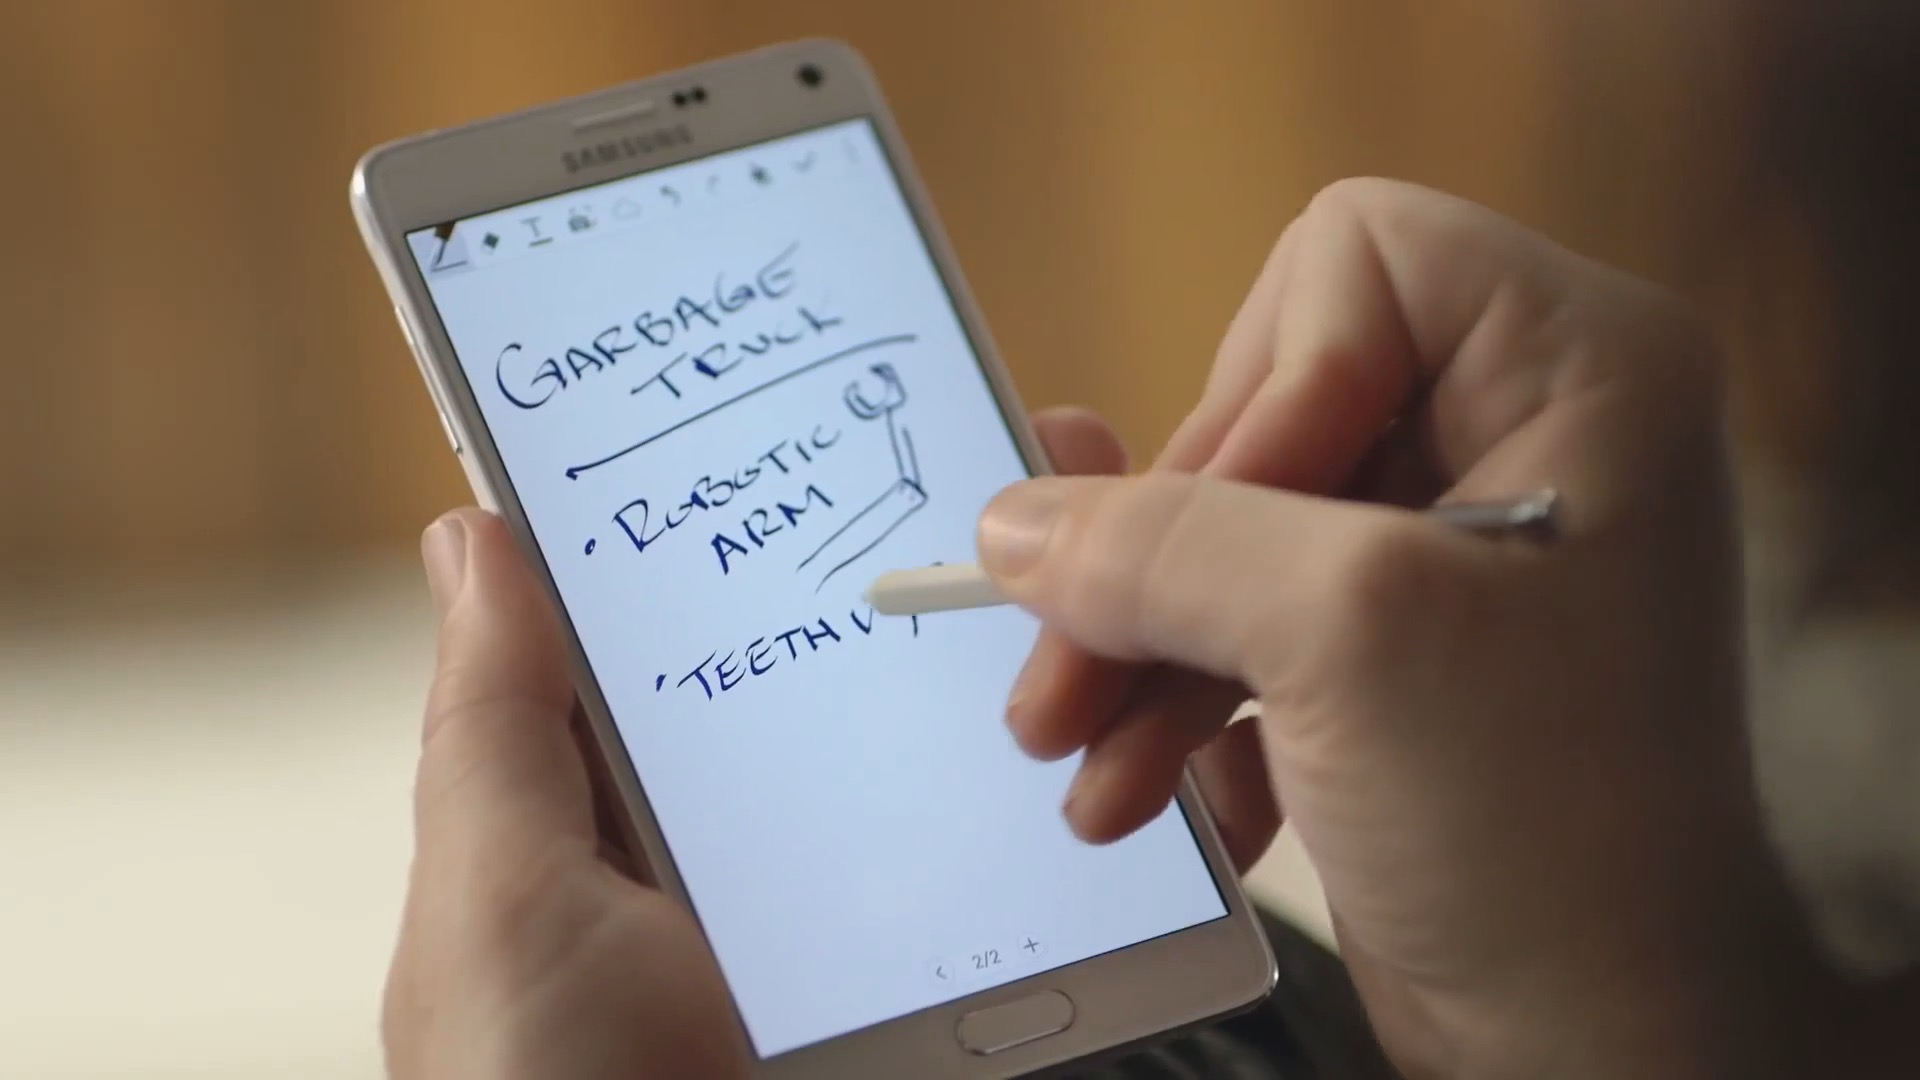 SAMSUNG
T
GARBAGE
TRUCK
• ROBOTIC
ARM
• TEETH
2/2